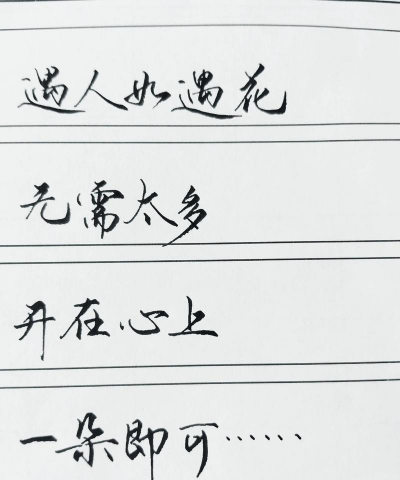 遇人如遇花
无需太多
开在心上
一朵即可……